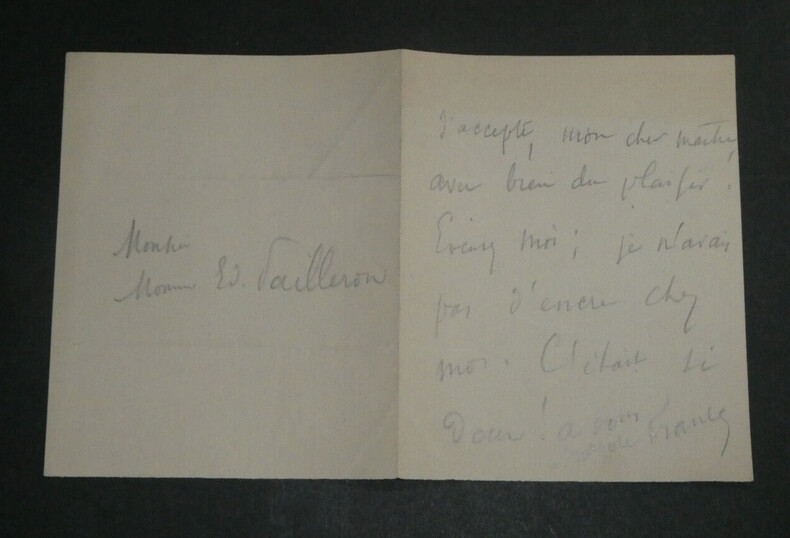 Monsieur
Monsieur Ed. Pailleron
J'accepte, mon cher maître,
avec bien du plaisir!
moi; je n'avais
pas d'encre chez
moi. C'était si
doux! à vous